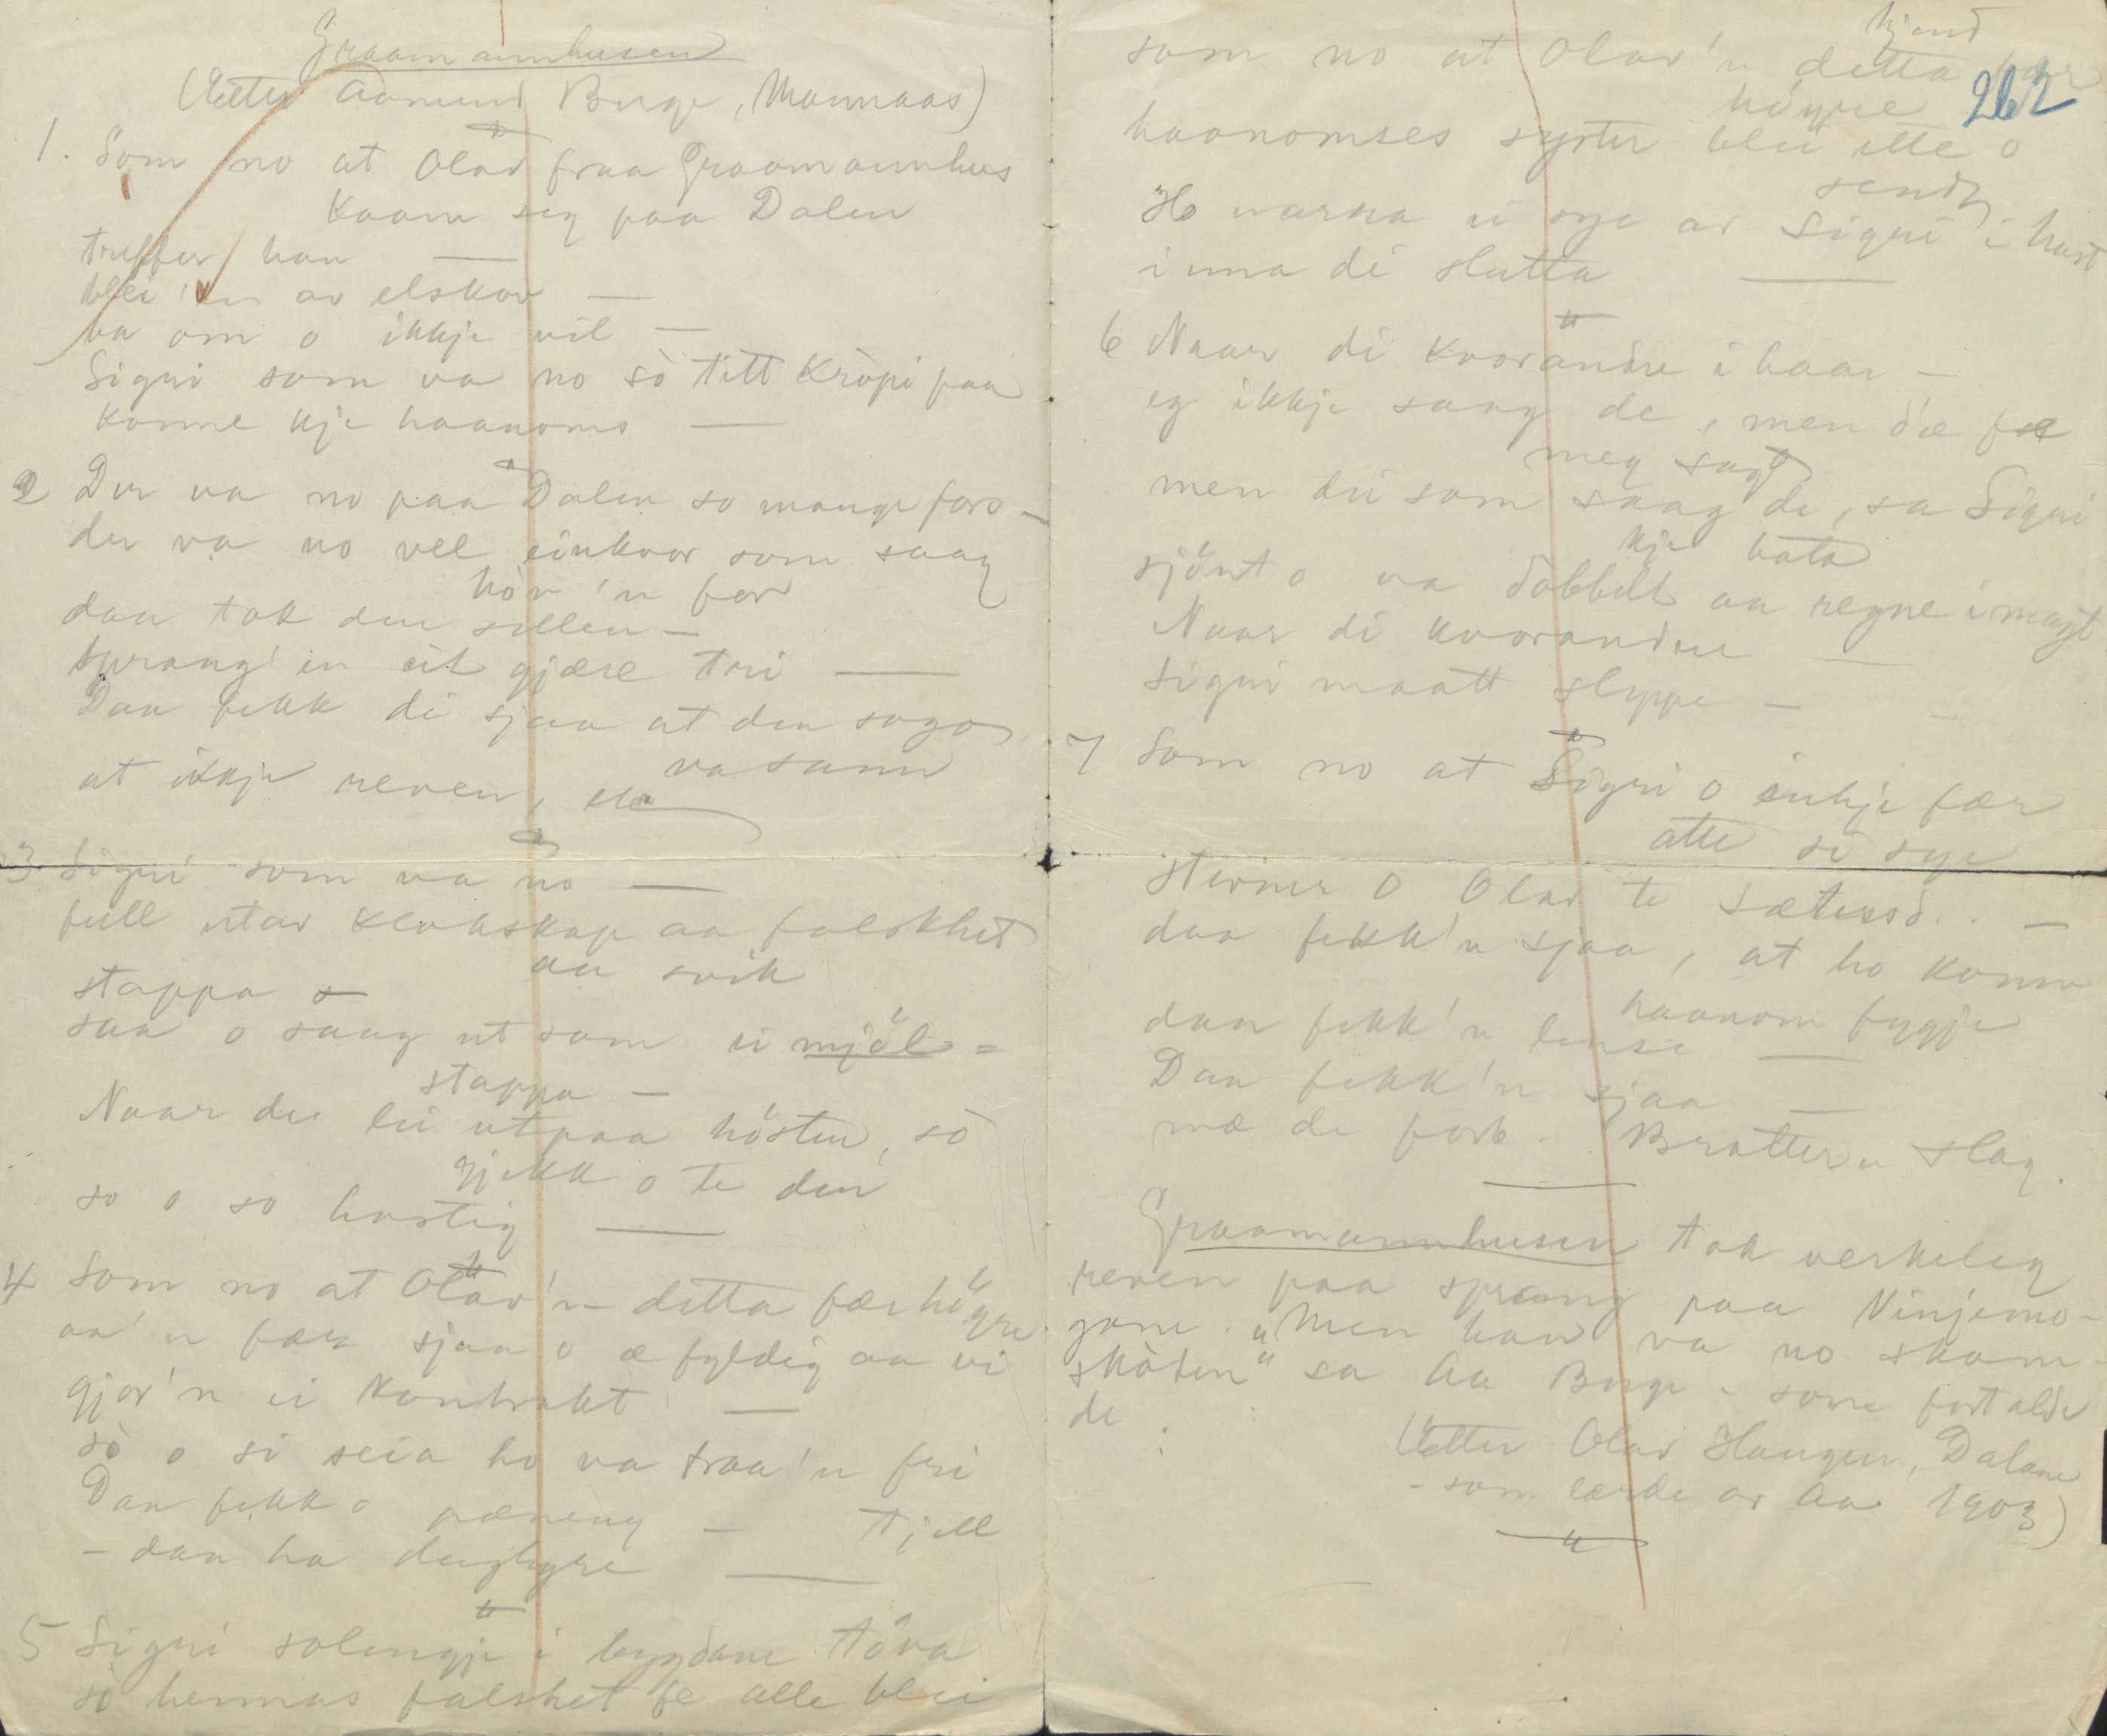 Graamannhusen
(Etter Aamund Buge, Mannaas)
1. Som no at Olav fraa Graamannhus
kaam seg paa Dalen
treffer han —
blei 'n av elskov —
va om o ikkje vil —
Sigri som va no sò titt kròpi paa
konne kje haanoms —
2 Der va no paa Dalen so mange fors —
der va no vel einkvor som saag
hòr 'n for
daa tok den sillen —
sprang' en eit gjære tri —
Daa fekk di sjaa at den soga
va sann
at ikkje reven, —
3. Sigri som va no —
full utav klokskap aa falskhet
aa svik
stappa
saa o saag ut som ei mjöl=
stappa —
Naar de lei utpaa hösten, sò
gjekk o te den
so o so hastig —
4 Som no at Olav'n detta fær högre
aa'n fær sjaa o æ fyldig aa vi
gjor'n ei kontrakt —
sò o si seia ho va traa'n fri
Daa fekk o pæneng — tjell
— daa ha dughyre —
5 Sigri solengje i bygdane töva
sò hennas falshet fe alle blei
kjend
som no at Olav'n detta fær
höyre 262
haanomses syster blei ette o
send
Ho narra ei sye av Sigri i hast
inna di slutta —
6 Naar di kvorandre i haar —
eg ikkje saag de, men d'æ fe
meg sagt
men dei som saag de, sa Sigri
kje bata
sjönt o va dobbelt aa regne i magt
Naar di kvorandre —
Sigri maatt sleppe —
7 Som no at Sigri o inkje fær
atte si sye
stevner o Olav te Sætessd.. —
daa fekk'n sjaa, at ho konn
haanom fygje
daa fekk'n lense —
Daa fekk'n sjaa —
mæ de forb. Bratter'n slag.
Graamannhusen tok verkeleg
reven paa sprang paa Vinjemo-
gane. "Men han va no skam-
skòten" sa Aa Buge - som fortalde
de.
(Etter Olav Haugen, Dalane
- som lærde av Aa 1903)